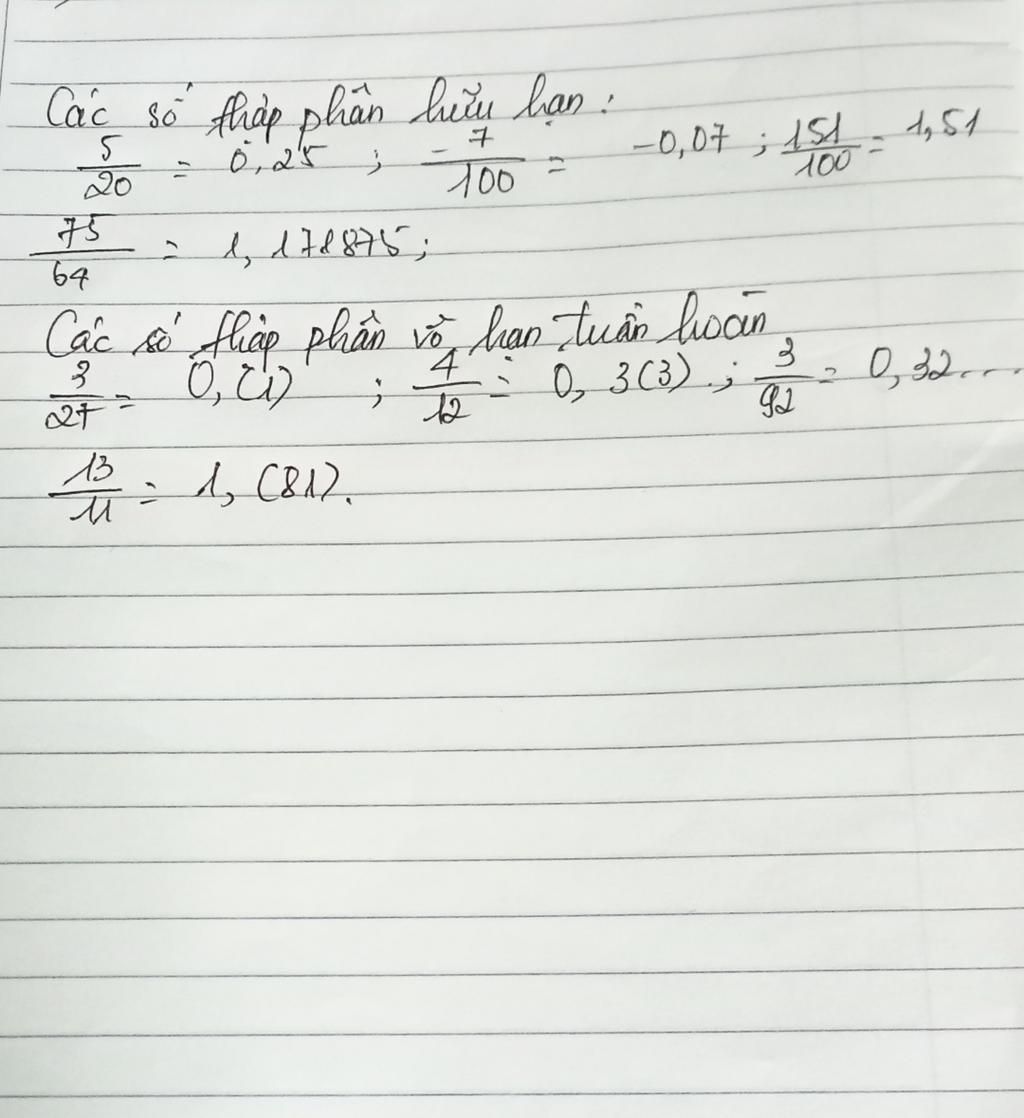 Các số thập phân hữu hạn:
5/20 = 0,25 ; -7/100 = -0,07 ; 151/100 = 1,51
75/64 = 1,171875;
Các số thập phân vô hạn tuần hoàn
3/27 = 0,(1) ; 4/12 = 0,3(3) . ; 3/92 = 0,32...
13/11 = 1,(81).